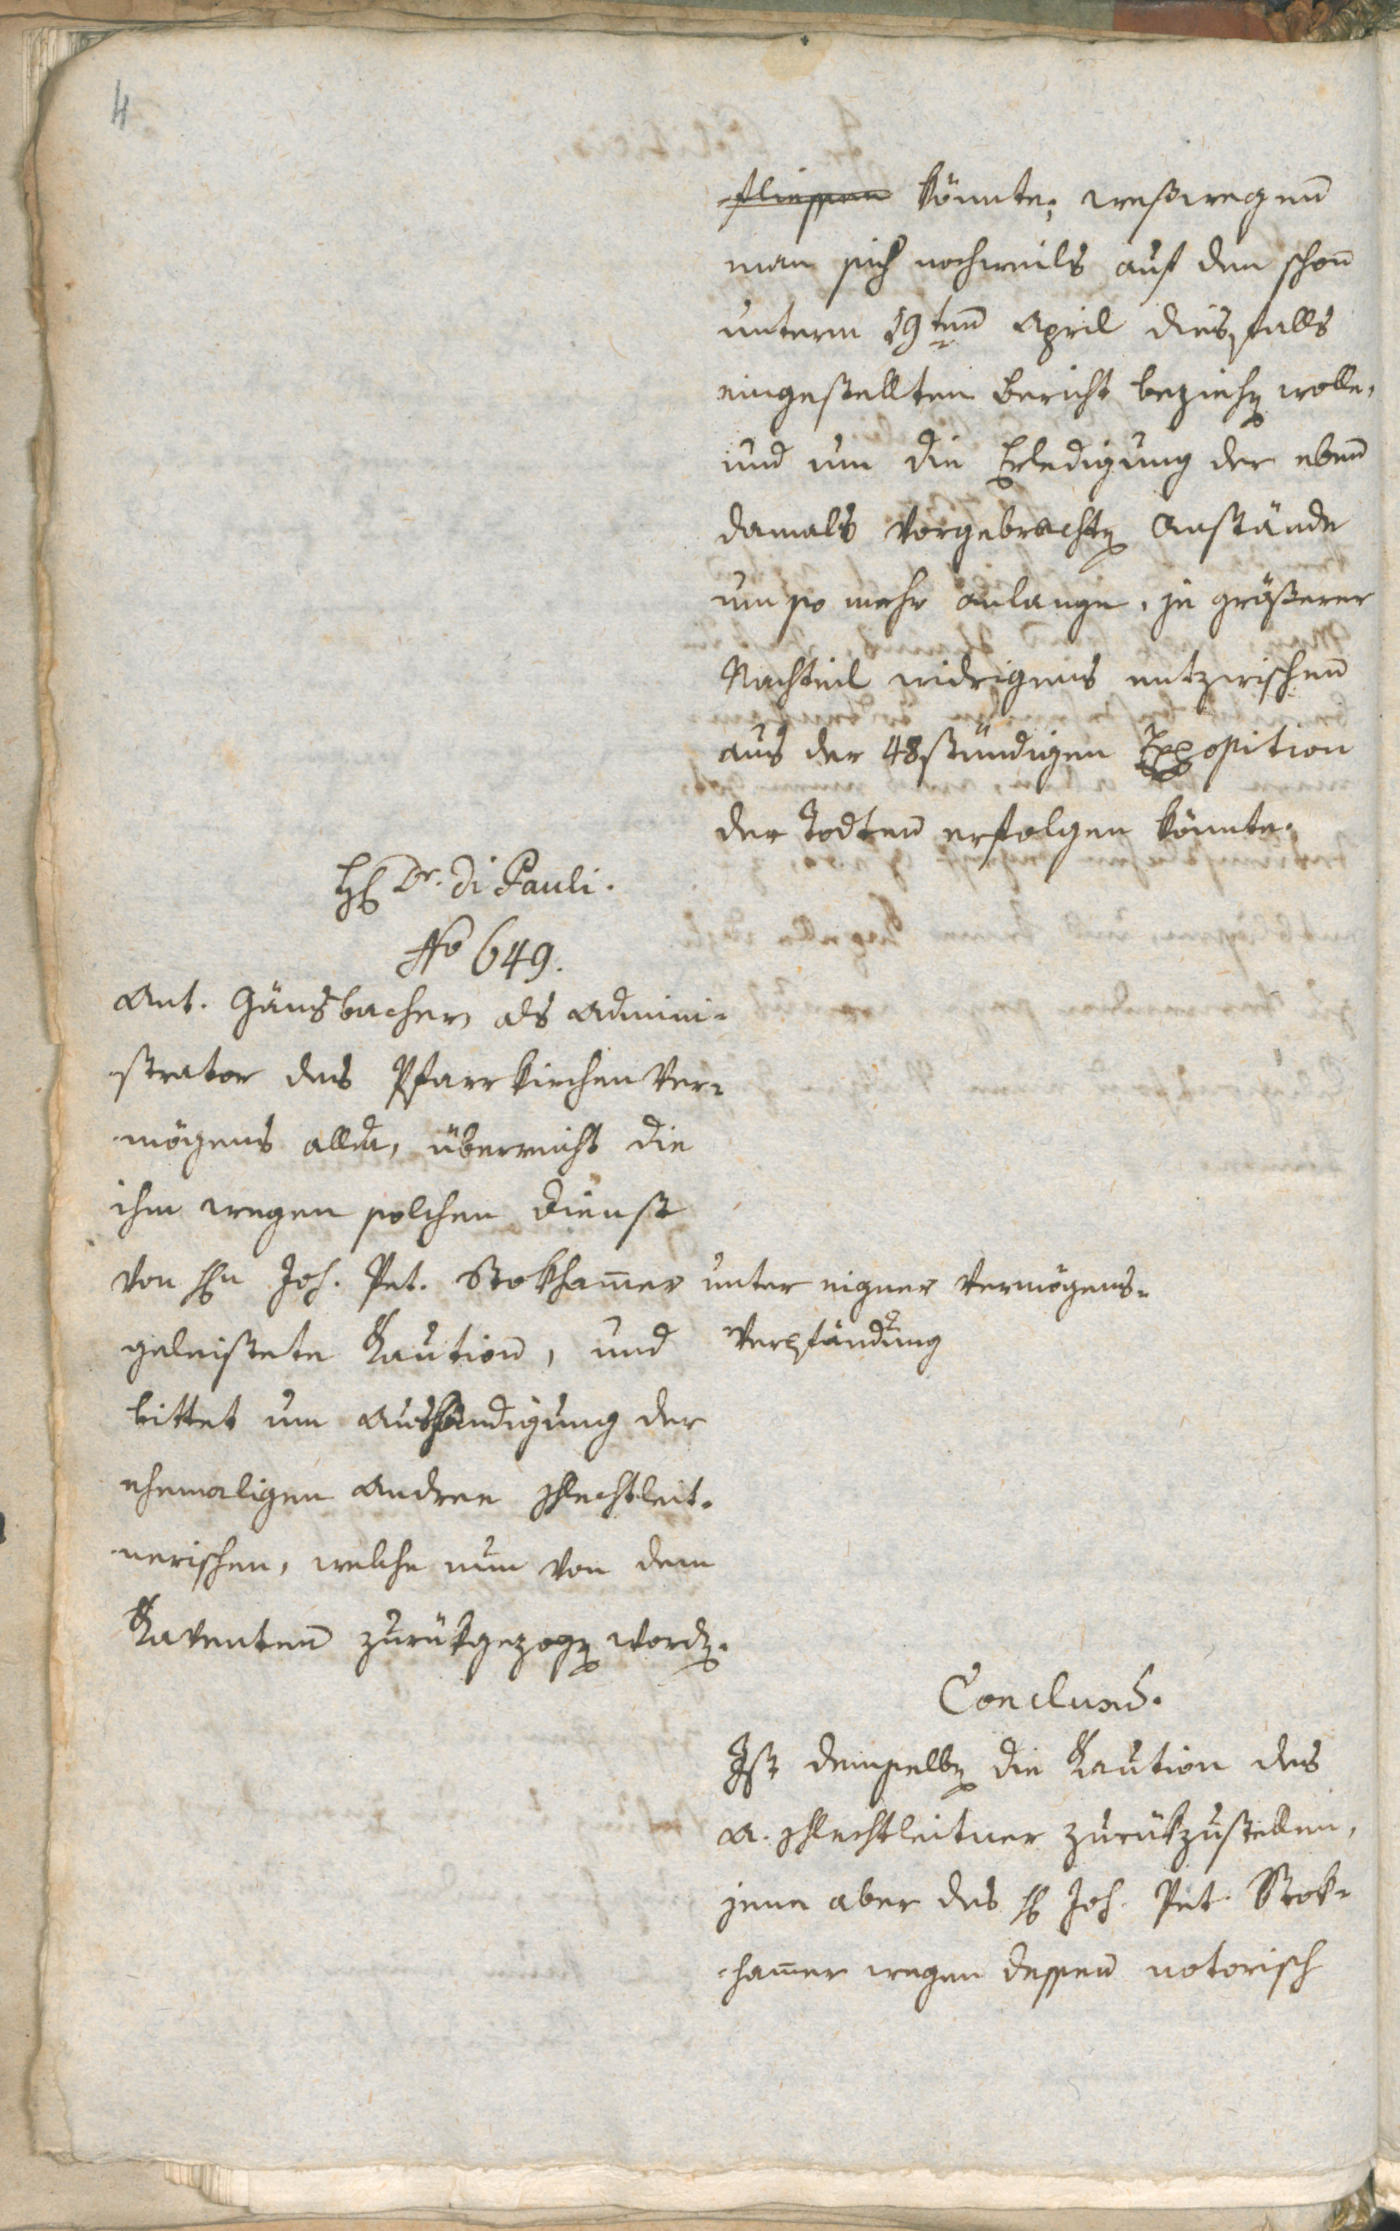 4
fliessen könnte; weßwegen
man sich nochmals auf den schon
unterm 19ten April diesfalls
eingestellten Bericht beziehen wolle,
und um die Erledigung der eben
damals vorgebrachten Anstände
um so mehr anlange, je größerer
Nachteil widrigens entzwischen
aus der 48stündigen Exposition
der Todten erfolgen könnte.
H Dr. di Pauli.
No 649.
Ant. Gänsbacher als Admini-
strator des Pfarrkirchen Ver-
mögens allda, überreicht die
ihm wegen solchen Dienst
von Hn Joh. Pet. Stokhamer unter eigner Vermögens-
geleistete Kaution, und Verpfändung
bittet um Aushändigung der
ehemaligen Andree Schlechtleit-
nerischen, welche nun von dem
Kaventen zurükgezogen worden.
Conclus.
Ist demselben die Kaution des
A. Schlechtleitner zurükzustellen,
jene aber des H Joh. Pet. Stok-
hamer wegen dessen notorisch